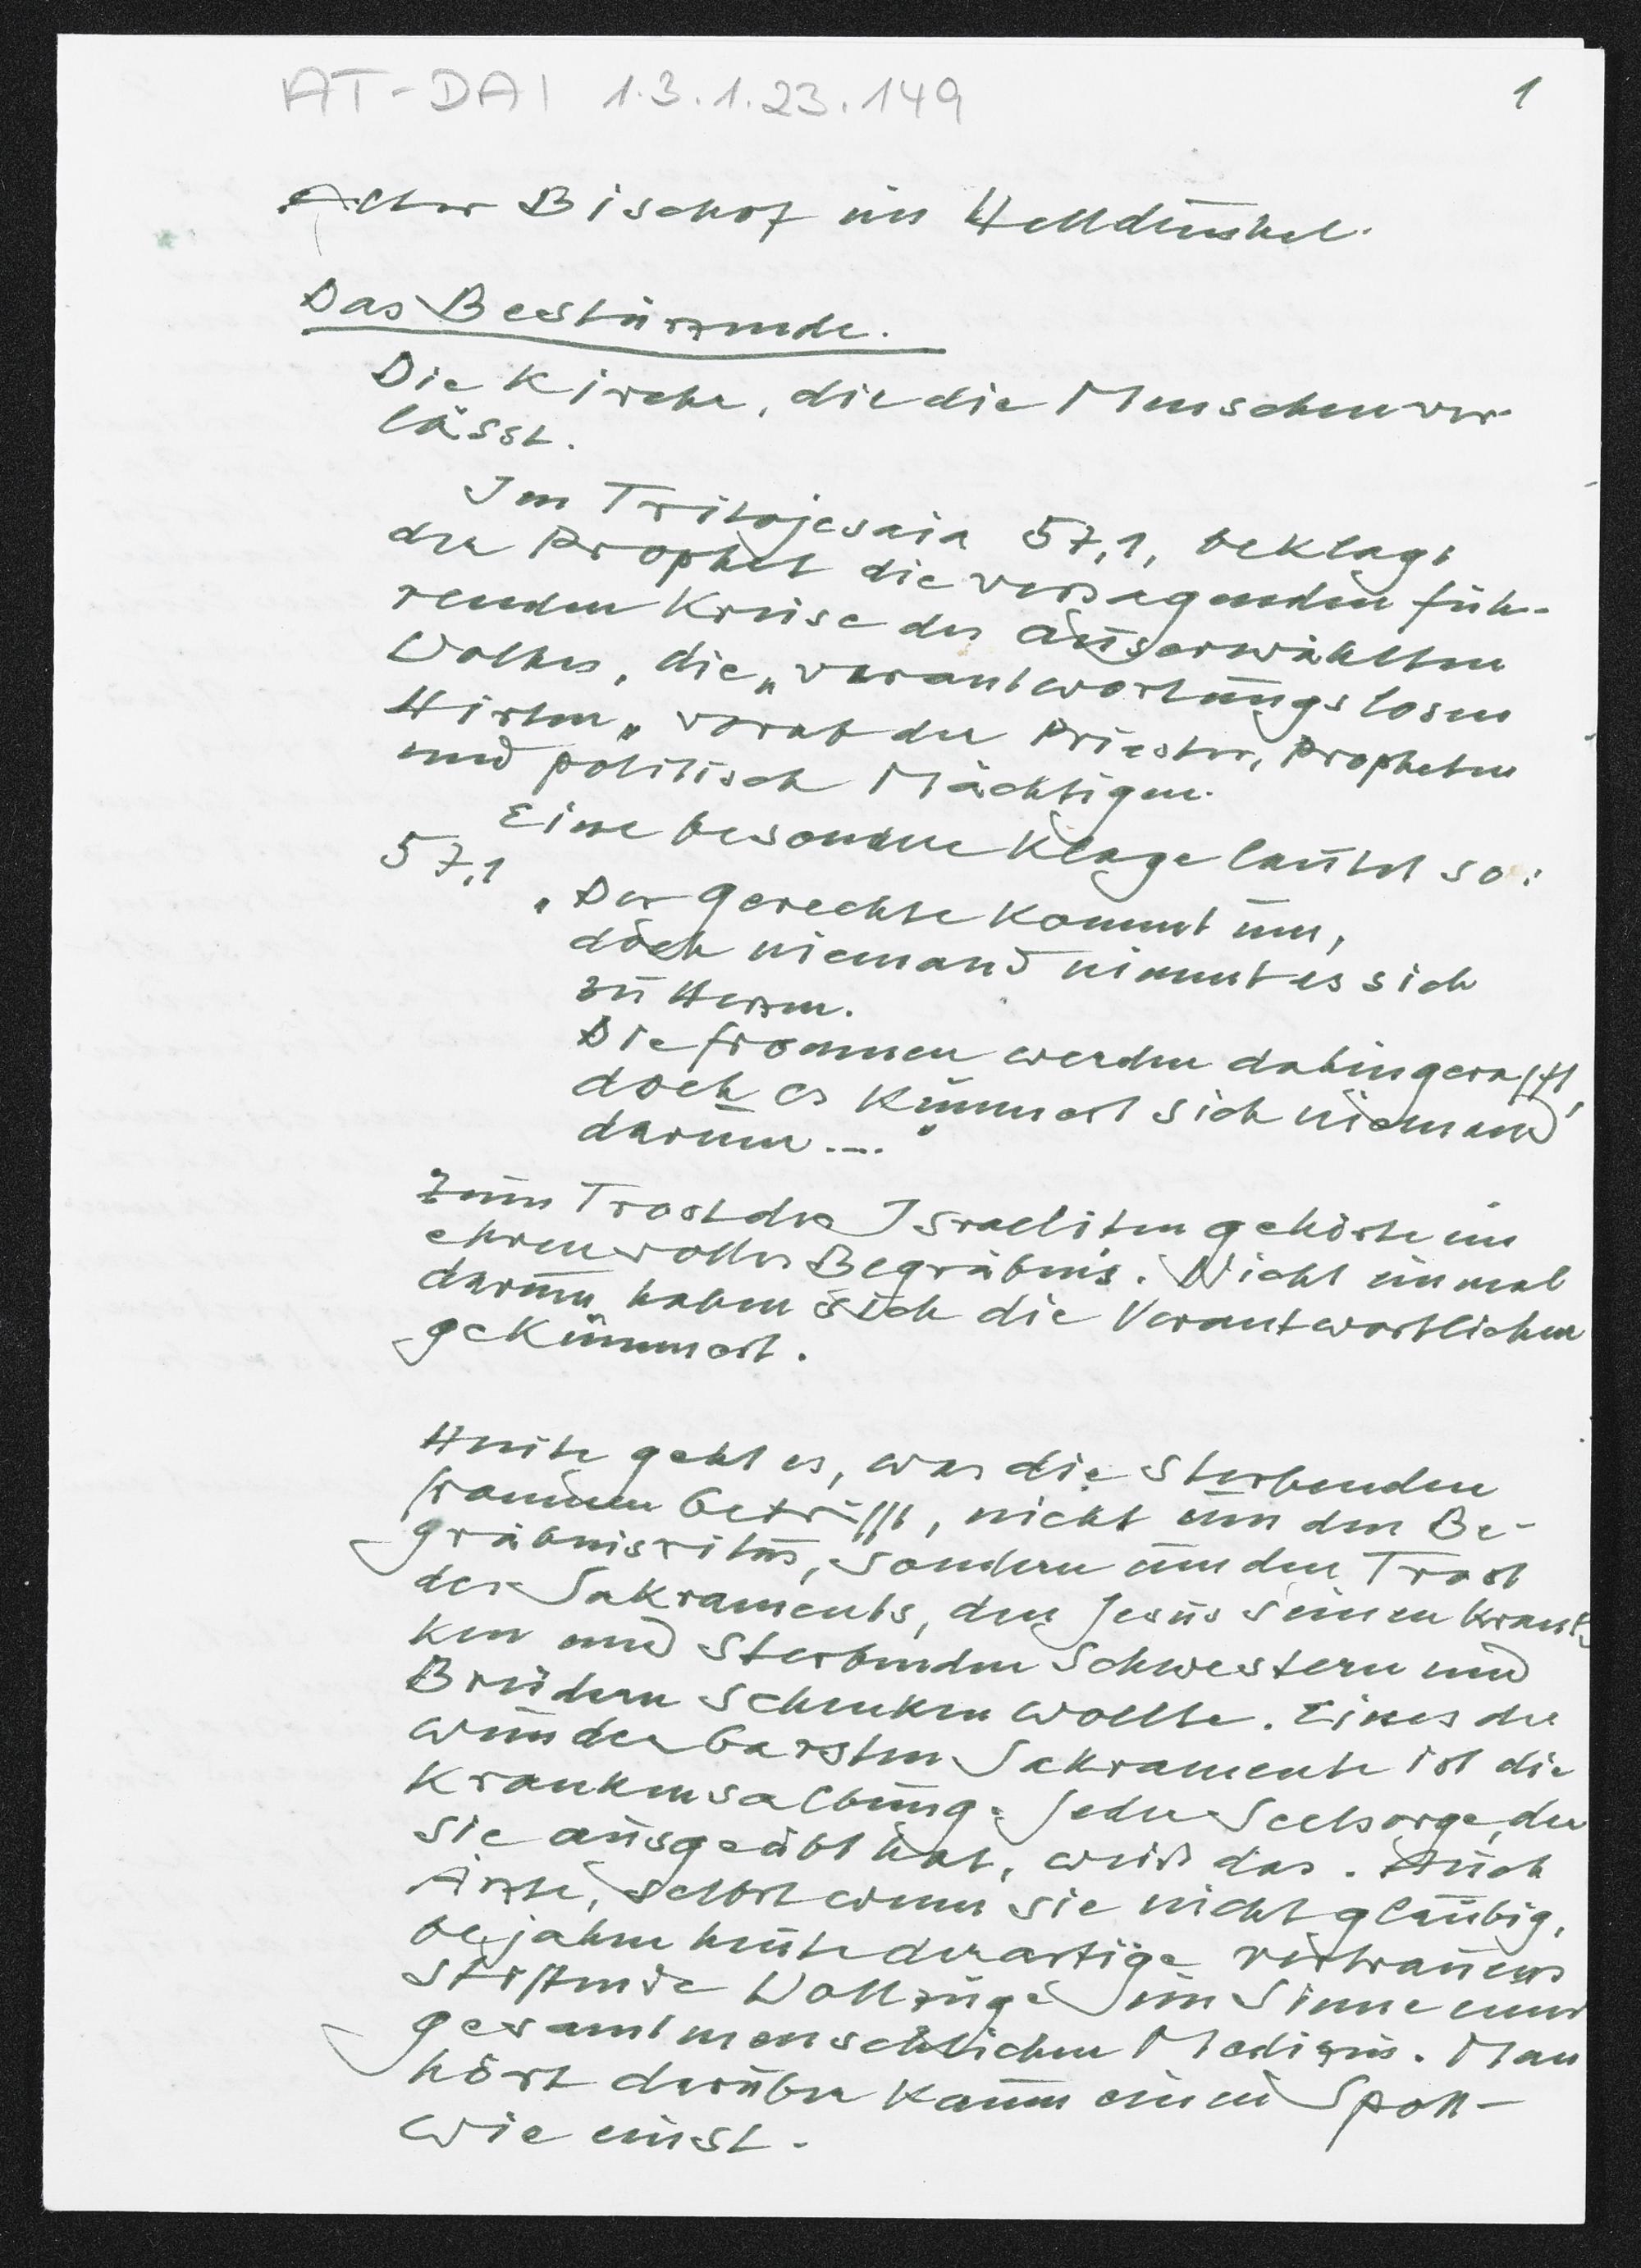 AT-DAI 1.3.1.23.149
1
Alter Bischof im Helldunkel.
Das Bestürzende.
Die Kirche, die die Menschen ver-
lässt.
Im Tritojesaia 57,1, beklagt
der Prophet die versagenden füh-
renden Kreise des auserwählten
Volkes, die „verantwortungslosen
Hirten„ vorab der Priester, Propheten
und politisch Mächtigen.
Eine besondere Klage lautet so:
57,1
„Der Gerechte kommt um,
doch niemand nimmt es sich
zu Herzen.
Die frommen werden dahingerafft,
doch es kümmert sich niemand
darum ...."
Zum Trost des Israeliten gehörte ein
ehrenvolles Begräbnis. Nicht einmal
darum haben sich die Verantwortlichen
gekümmert.
Heute geht es, was die sterbenden
frommen betrifft, nicht um den Be-
gräbnisritus, sondern um den Trost
der Sakraments, den Jesus seinen kran-
ken und sterbenden Schwestern und
Brüdern schenken wollte. Eines der
wunderbarsten Sakramente ist die
Krankensalbung. Jeder Seelsorge, der
sie ausgeübt hat, weiß das. Auch
Ärzte, selbst wenn sie nicht gläubig,
bejahen heute derartige vertrauens
stiftende Vollzüge im Sinne einer
gesamtmenschlichen Medizin. Man
hört darüber kaum einen Spott -
wie einst.